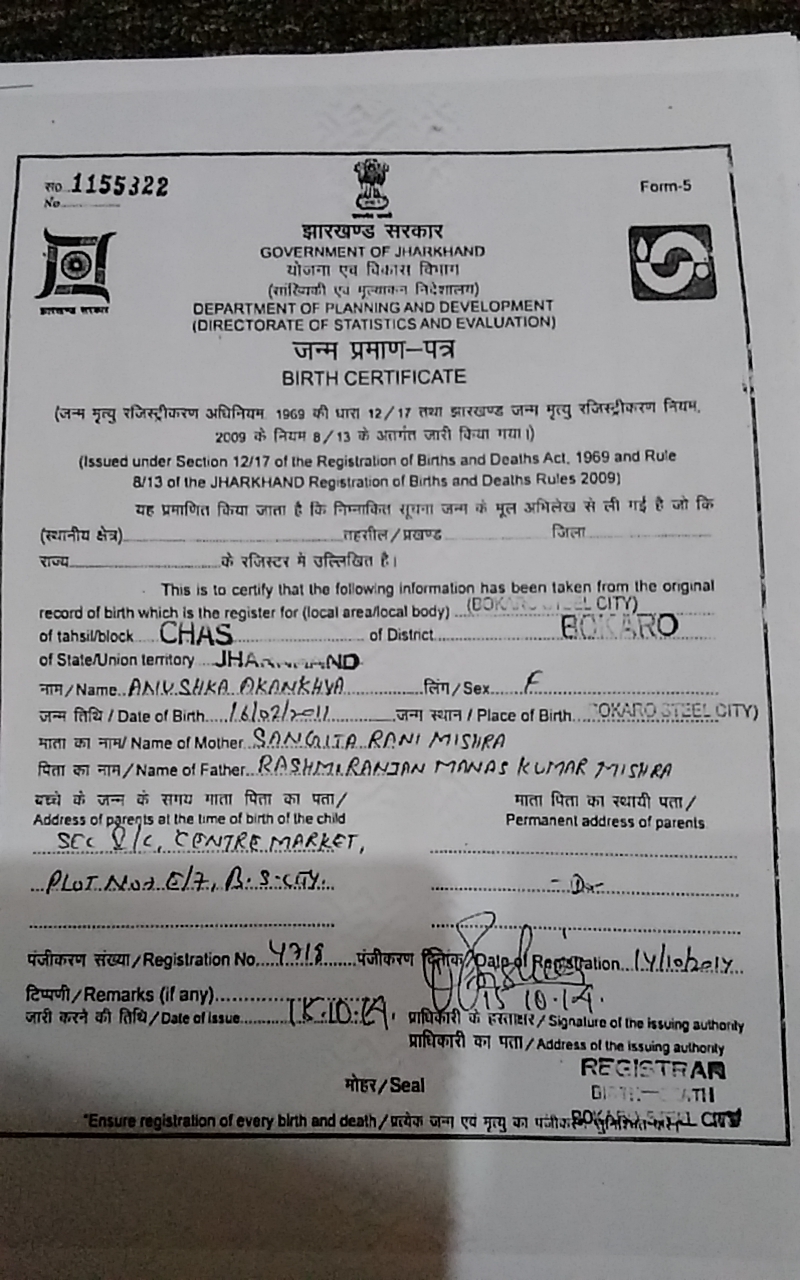 सं० 1155322
No
Form-5
झारखण्ड सरकार
झारखण्ड सरकार
GOVERNMENT OF JHARKHAND
योजना एवं विकास विभाग
(सांख्यिकी एवं मूल्यांकन निदेशालय)
DEPARTMENT OF PLANNING AND DEVELOPMENT
(DIRECTORATE OF STATISTICS AND EVALUATION)
जन्म प्रमाण-पत्र
BIRTH CERTIFICATE
(जन्म मृत्यु रजिस्ट्रीकरण अधिनियम, 1969 की धारा 12/17 तथा झारखण्ड जन्म मृत्यु रजिस्ट्रीकरण नियम,
2009 के नियम 8/13 के अंतर्गत जारी किया गया।)
(Issued under Section 12/17 of the Registration of Births and Deaths Act, 1969 and Rule
8/13 of the JHARKHAND Registration of Births and Deaths Rules 2009)
यह प्रमाणित किया जाता है कि निम्नांकित सूचना जन्म के मूल अभिलेख से ली गई है जो कि
(स्थानीय क्षेत्र) तहसील/प्रखण्ड जिला
राज्य के रजिस्टर में उल्लिखित है।
This is to certify that the following information has been taken from the original
record of birth which is the register for (local area/local body) (BOKARO STEEL CITY)
of tahsil/block CHAS of District BOKARO
of State/Union territory JHARKHAND
नाम/Name ANUSHKA AKANKHYA लिंग/Sex F
जन्म तिथि/Date of Birth 16/02/2011 जन्म स्थान/Place of Birth BOKARO STEEL CITY)
माता का नाम/Name of Mother SANGITA RANI MISHRA
पिता का नाम/Name of Father RASHMIRANJAN MANAS KUMAR MISHRA
बच्चे के जन्म के समय माता पिता का पता/ माता पिता का स्थायी पता/
Address of parents at the time of birth of the child Permanent address of parents
SEC CENTRE MARKET,
PLOT E/7, B.S. CITY. -Do-
पंजीकरण संख्या/Registration No. पंजीकरण दिनांक/Date of Registration 14/10/2014
टिप्पणी/Remarks (if any) 15.10.14.
जारी करने की तिथि/Date of Issue प्राधिकारी के हस्ताक्षर/Signature of the issuing authority
प्राधिकारी का पता/Address of the issuing authority
REGISTRAR
मोहर/Seal
BOKARO STEEL CITY
*Ensure registration of every birth and death/प्रत्येक जन्म एवं मृत्यु का पंजीकरण सुनिश्चित करें